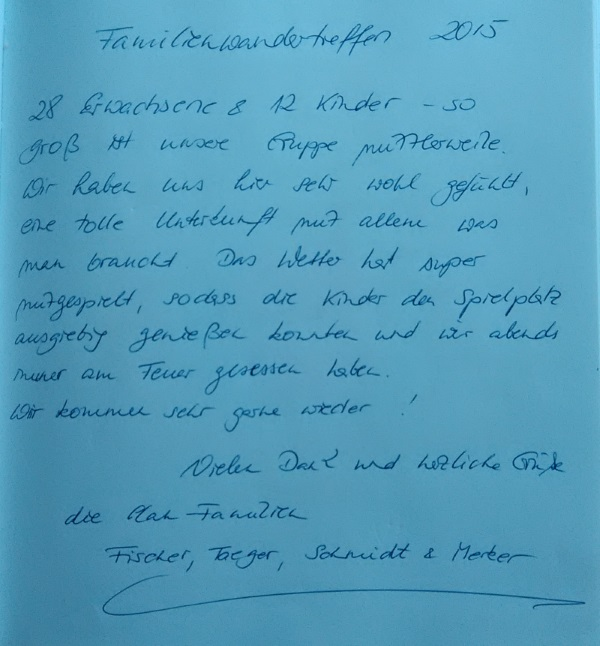 Familienwandertreffen 2015
28 Erwachsene & 12 Kinder - so
groß ist unsere Gruppe mittlerweile.
Wir haben uns hier sehr wohl gefühlt,
eine tolle Unterkunft mit allem was
man braucht Das Wetter hat super
mitgespielt, sodass die Kinder den Spielplatz
ausgiebig genießen konnten und wir abends
immer am Feuer gesessen haben.
Wir kommen sehr gerne wieder!
Vielen Dank und herzliche Grüße
die Familien
Fischer, Taeger, Schmidt & Merker